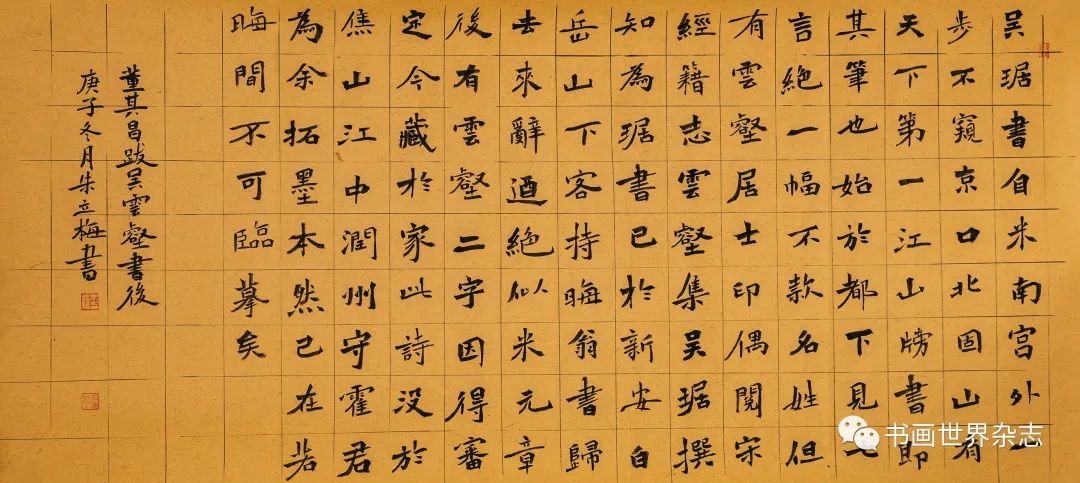 吴琚書自米南宫外一
步不窺京口北固山有
天下第一江山牓書即
其筆也始於都下見七
言絶一幅不款名姓但
有雲壑居士印偶閲宋
經籍志雲壑集吴琚撰
知為琚書已於新安白
岳山下客持晦翁書歸
去來辭迺絶似米元章
後有雲壑二字因得審
定今藏於家此詩没於
焦山江中潤州守霍君
為余拓墨本然已在若
晦間不可臨摹矣
董其昌跋吴雲壑書後
庚子冬月朱立梅書
书画世界杂志